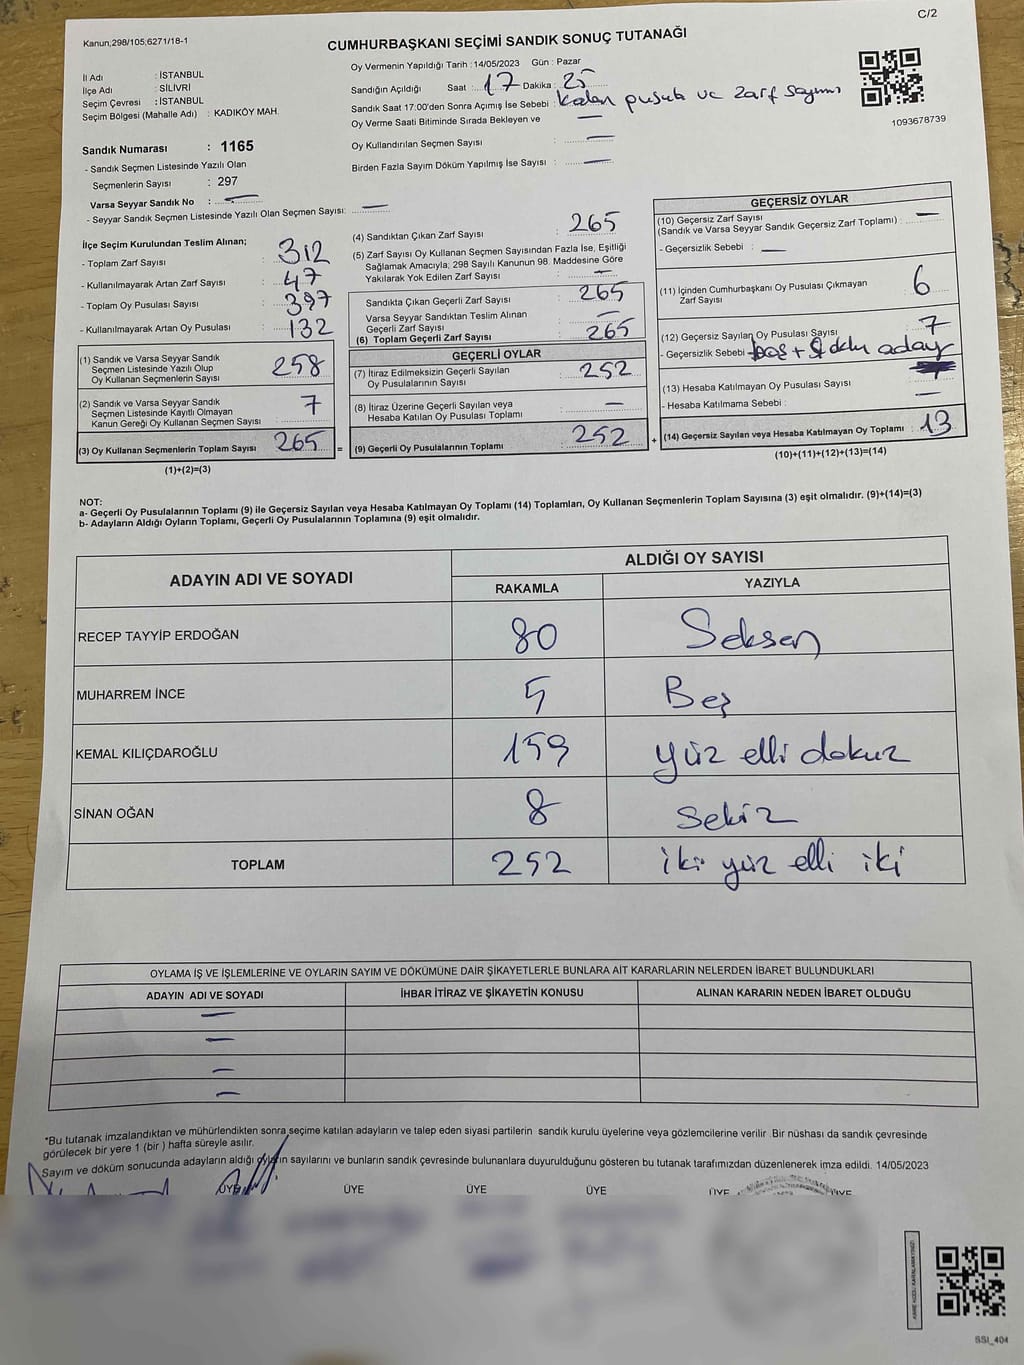 C/2
Kanun,298/105;6271/18-1
CUMHURBAŞKANI SEÇİMİ SANDIK SONUÇ TUTANAĞI
İl Adı : İSTANBUL
İlçe Adı : SİLİVRİ
Seçim Çevresi : İSTANBUL
Seçim Bölgesi (Mahalle Adı) : KADIKÖY MAH.
Sandık Numarası : 1165
- Sandık Seçmen Listesinde Yazılı Olan
Seçmenlerin Sayısı : 297
Varsa Seyyar Sandık No : —
- Seyyar Sandık Seçmen Listesinde Yazılı Olan Seçmen Sayısı: —
Oy Vermenin Yapıldığı Tarih : 14/05/2023 Gün : Pazar
Sandığın Açıldığı Saat : 17 Dakika : 25
Sandık Saat 17:00'den Sonra Açımış İse Sebebi : kalan pusula ve zarf sayımı
Oy Verme Saati Bitiminde Sırada Bekleyen ve —
Oy Kullandırılan Seçmen Sayısı : —
Birden Fazla Sayım Döküm Yapılmış İse Sayısı : —
1093678739
İlçe Seçim Kurulundan Teslim Alınan;
- Toplam Zarf Sayısı : 312
- Kullanılmayarak Artan Zarf Sayısı : 47
- Toplam Oy Pusulası Sayısı : 397
- Kullanılmayarak Artan Oy Pusulası : 132
(1) Sandık ve Varsa Seyyar Sandık
Seçmen Listesinde Yazılı Olup
Oy Kullanan Seçmenlerin Sayısı : 258
(2) Sandık ve Varsa Seyyar Sandık
Seçmen Listesinde Kayıtlı Olmayan
Kanun Gereği Oy Kullanan Seçmen Sayısı : 7
(3) Oy Kullanan Seçmenlerin Toplam Sayısı : 265 =
(1)+(2)=(3)
(4) Sandıktan Çıkan Zarf Sayısı : 265
(5) Zarf Sayısı Oy Kullanan Seçmen Sayısından Fazla İse, Eşitliği
Sağlamak Amacıyla; 298 Sayılı Kanunun 98. Maddesine Göre
Yakılarak Yok Edilen Zarf Sayısı : —
Sandıkta Çıkan Geçerli Zarf Sayısı : 265
Varsa Seyyar Sandıktan Teslim Alınan
Geçerli Zarf Sayısı : —
(6) Toplam Geçerli Zarf Sayısı : 265
GEÇERLİ OYLAR
(7) İtiraz Edilmeksizin Geçerli Sayılan
Oy Pusulalarının Sayısı : 252
(8) İtiraz Üzerine Geçerli Sayılan veya
Hesaba Katılan Oy Pusulası Toplamı : —
(9) Geçerli Oy Pusulalarının Toplamı : 252 +
GEÇERSİZ OYLAR
(10) Geçersiz Zarf Sayısı
(Sandık ve Varsa Seyyar Sandık Geçersiz Zarf Toplamı) : —
- Geçersizlik Sebebi : —
(11) İçinden Cumhurbaşkanı Oy Pusulası Çıkmayan
Zarf Sayısı : 6
(12) Geçersiz Sayılan Oy Pusulası Sayısı : 7
- Geçersizlik Sebebi : boş + aday
(13) Hesaba Katılmayan Oy Pusulası Sayısı : —
- Hesaba Katılmama Sebebi :
(14) Geçersiz Sayılan veya Hesaba Katılmayan Oy Toplamı : 13
(10)+(11)+(12)+(13)=(14)
NOT:
a- Geçerli Oy Pusulalarının Toplamı (9) ile Geçersiz Sayılan veya Hesaba Katılmayan Oy Toplamı (14) Toplamları, Oy Kullanan Seçmenlerin Toplam Sayısına (3) eşit olmalıdır. (9)+(14)=(3)
b- Adayların Aldığı Oyların Toplamı, Geçerli Oy Pusulalarının Toplamına (9) eşit olmalıdır.
ADAYIN ADI VE SOYADI
ALDIĞI OY SAYISI
RAKAMLA YAZIYLA
RECEP TAYYİP ERDOĞAN 80 Seksen
MUHARREM İNCE 5 Beş
KEMAL KILIÇDAROĞLU 159 Yüz elli dokuz
SİNAN OĞAN 8 Sekiz
TOPLAM 252 iki yüz elli iki
OYLAMA İŞ VE İŞLEMLERİNE VE OYLARIN SAYIM VE DÖKÜMÜNE DAİR ŞİKAYETLERLE BUNLARA AİT KARARLARIN NELERDEN İBARET BULUNDUKLARI
ADAYIN ADI VE SOYADI İHBAR İTİRAZ VE ŞİKAYETİN KONUSU ALINAN KARARIN NEDEN İBARET OLDUĞU
—
—
—
—
*Bu tutanak imzalandıktan ve mühürlendikten sonra seçime katılan adayların ve talep eden siyasi partilerin sandık kurulu üyelerine veya gözlemcilerine verilir. Bir nüshası da sandık çevresinde
görülecek bir yere 1 (bir ) hafta süreyle asılır.
Sayım ve döküm sonucunda adayların aldığı oyların sayılarını ve bunların sandık çevresinde bulunanlara duyurulduğunu gösteren bu tutanak tarafımızdan düzenlenerek imza edildi. 14/05/2023
ÜYE ÜYE ÜYE ÜYE ÜYE ÜYE
SSI_404